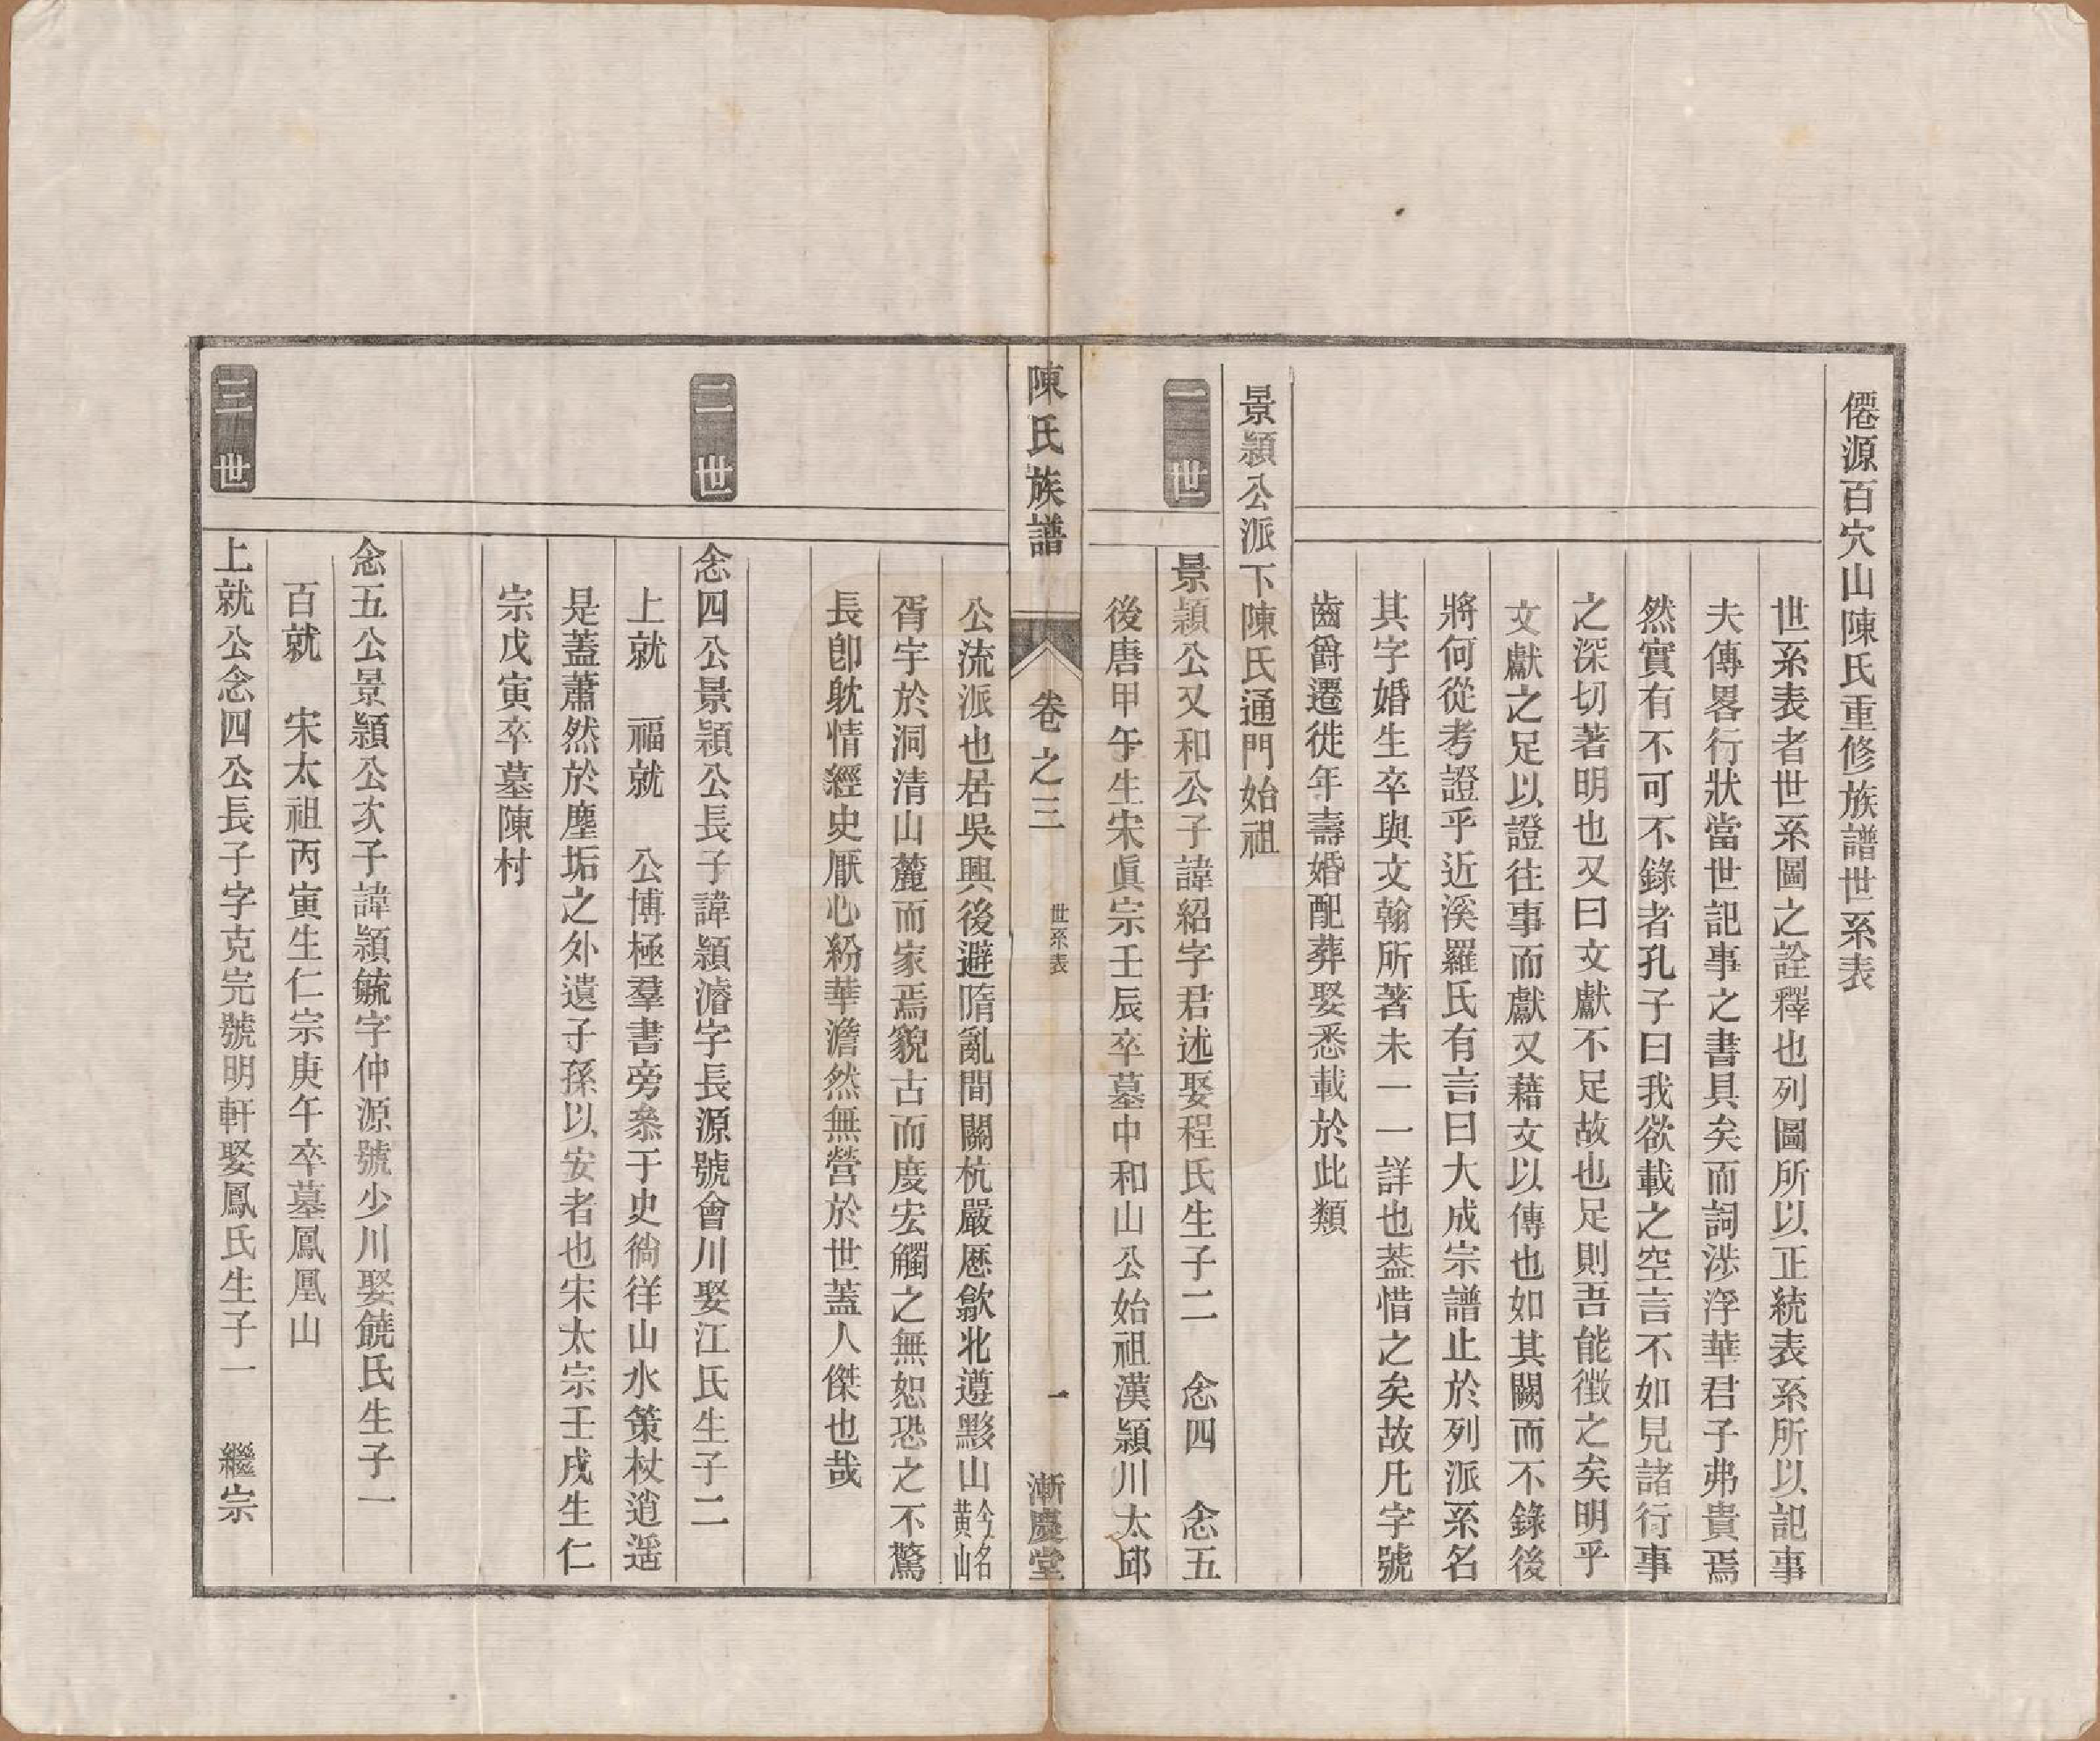 僊源百穴山陳氏重修族譜世系表
世系表者世系圖之詮釋也列圖所以正統表系所以記事
夫傳畧行狀當世記事之書具矣而詞涉浮華君子弗貴焉
然實有不可不錄者孔子曰我欲載之空言不如見諸行事
之深切著明也又曰文獻不足故也足則吾能徵之矣明乎
文獻之足以證往事而獻又藉文以傳也如其闕而不錄後
將何從考證乎近溪羅氏有言曰大成宗譜止於列派系名
其字婚生卒與文翰所著未一一詳也葢惜之矣故凡字號
齒爵遷徙年壽婚配葬娶悉載於此類
景潁公派下陳氏通門始祖
一世
景潁公又和公子諱紹字君述娶程氏生子二 念四 念五
後唐甲午生宋眞宗壬辰卒墓中和山公始祖漢潁川太邱
陳氏族譜 卷之三 世系表 一 漸慶堂
公流派也居吳興後避隋亂間關杭嚴歷歙北遵黟山今名黃山
胥宇於洞清山麓而家焉貌古而度宏觸之無恕恐之不驚
長卽躭情經史厭心紛華澹然無營於世蓋人傑也哉
二世
念四公景潁公長子諱潁濬字長源號會川娶江氏生子二
上就 福就 公博極羣書旁叅于史徜徉山水策杖逍遥
是蓋蕭然於塵垢之外遺子孫以安者也宋太宗壬戌生仁
宗戊寅卒墓陳村
念五公景潁公次子諱潁毓字仲源號少川娶饒氏生子一
百就 宋太祖丙寅生仁宗庚午卒墓鳳凰山
三世
上就公念四公長子字克完號明軒娶鳳氏生子一 繼宗